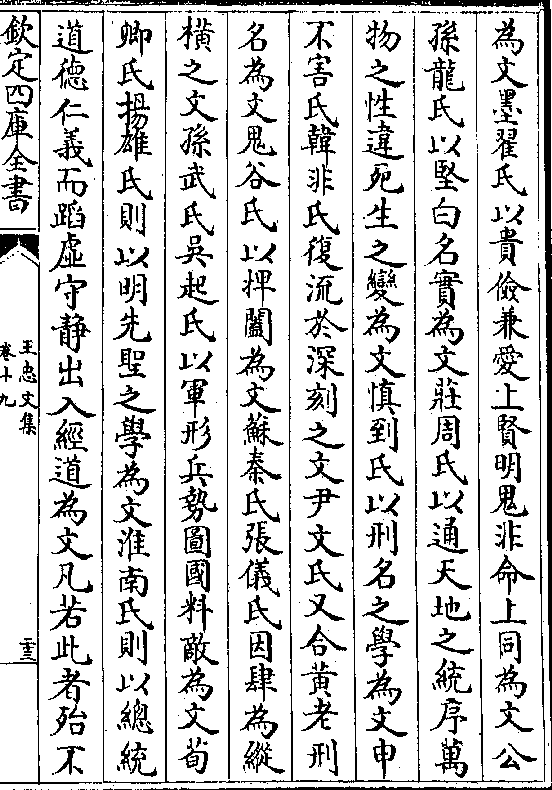 為文墨翟氏以貴儉兼愛上賢明鬼非命上同為文公
孫龍氏以堅白名實為文莊周氏以通天地之統序萬
物之性違死生之變為文慎到氏以刑名之學為文申
不害氏韓非氏復流於深刻之文尹文氏又合黃老刑
名為文鬼谷氏以捭闔為文蘇秦氏張儀氏因肆為縱
橫之文孫武氏吳起氏以軍形兵勢圖國料敵為文荀
卿氏揚雄氏則以明先聖之學為文淮南氏則以總統
道德仁義而蹈虛守静出入經道為文凡若此者殆不
欽定四庫全書
王忠文集
卷十九
二十三